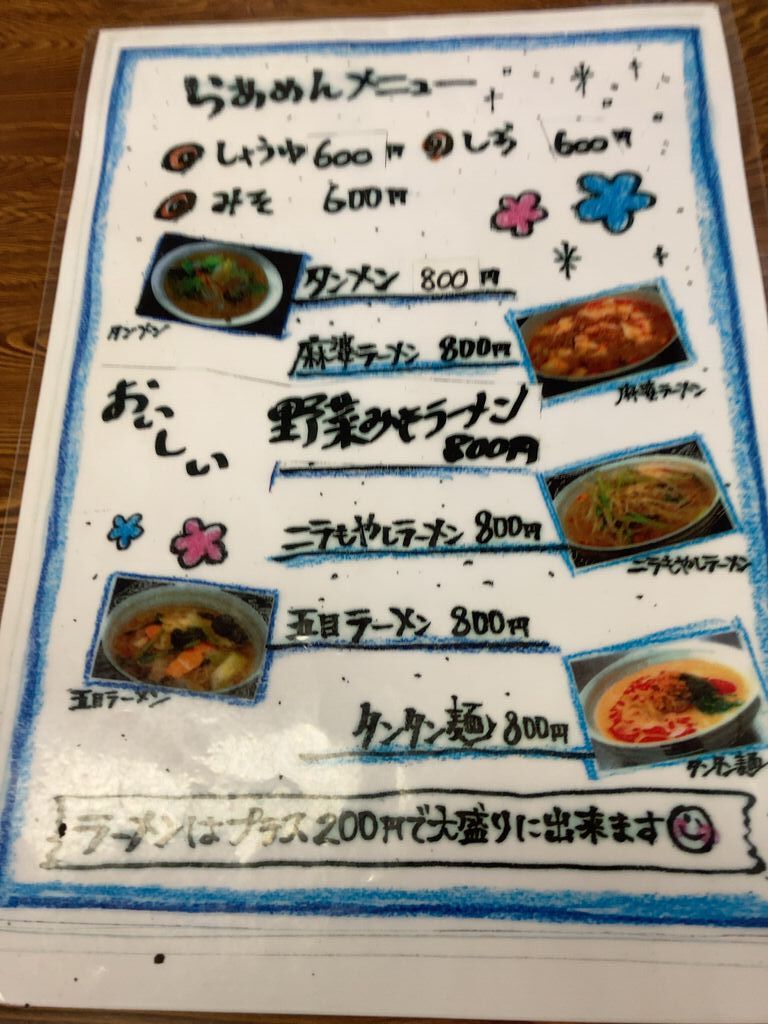 らあめんメニュー
しょうゆ 600円 しお 600円
みそ 600円
タンメン 800円
タンメン
麻婆ラーメン 800円
麻婆ラーメン
おいしい
野菜みそラーメン
800円
ニラもやしラーメン 800円
ニラもやしラーメン
五目ラーメン 800円
五目ラーメン
タンタン麺 800円
タンタン麺
ラーメンはプラス200円で大盛りに出来ます